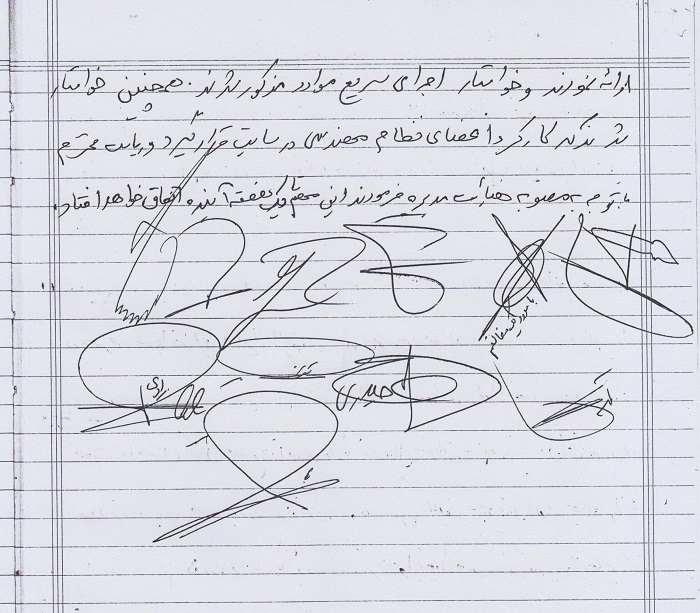 ارائه نمودند و خواستار اجرای سریع موارد مذکور شدند. همچنین خواستار
شدند که کارکرد اعضای نظام مهندسی در سایت قرار گیرد و ریاست محترم
با توجه به مصوبه هیأت مدیره فرمودند این مهم تا یک هفته آینده اتفاق خواهد افتاد.
حیدری